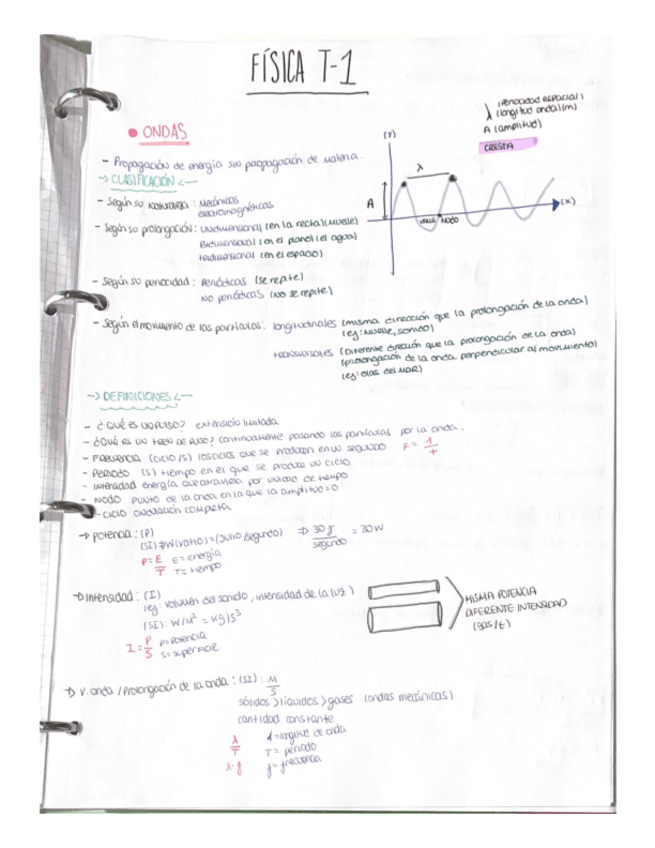 FÍSICA T-1
λ (Periodicidad espacial)
(longitud onda)(m)
A (amplitud)
CRESTA
● ONDAS
(Y)
λ
A
(x)
VALLE NODO
- Propagación de energía sin propagación de materia.
→ CLASIFICACIÓN ←
- Según su naturaleza: Mecánicas
electromagnéticas
- Según su prolongación: Unidimensional (en la recta)(muelle)
Bidimensional (en el plano)(el agua)
tridimensional (en el espacio)
- Según su periodicidad: Periódicas (se repite)
No periódicas (no se repite)
- Según el movimiento de las partículas: longitudinales (misma dirección que la prolongación de la onda)
(ej: muelle, sonido)
transversales (Diferente dirección que la prolongación de la onda)
(prolongación de la onda perpendicular al movimiento)
(ej: olas del MAR)
--> DEFINICIONES <--
- ¿Qué es un pulso? extensión limitada
- ¿Qué es un tren de pulso? continuamente pasando las partículas por la onda.
- FRECUENCIA (ciclo/s) los ciclos que se producen en un segundo F = 1/t
- PERIODO (s) tiempo en el que se produce un ciclo
- Intensidad energía que atraviesa por unidad de tiempo
- NODO punto de la onda en la que la amplitud = 0
- CICLO ondulación completa
→ Potencia: (P)
(SI) → W(vatio) = (Julio/segundo) ⇒ 30 J/segundo = 30 W
P = E/T E = energía
T = tiempo
→ Intensidad: (I)
(ej: volumen del sonido, intensidad de la luz)
(SI): W/m² = Kg/s³
I = P/S P = potencia
S = superficie
MISMA POTENCIA
DIFERENTE INTENSIDAD
(gas/t)
→ V. onda / Prolongación de la onda: (SI): M/S
sólidos > líquidos > gases (ondas mecánicas)
cantidad constante
λ/T d = longitud de onda
T = periodo
λ·f f = frecuencia